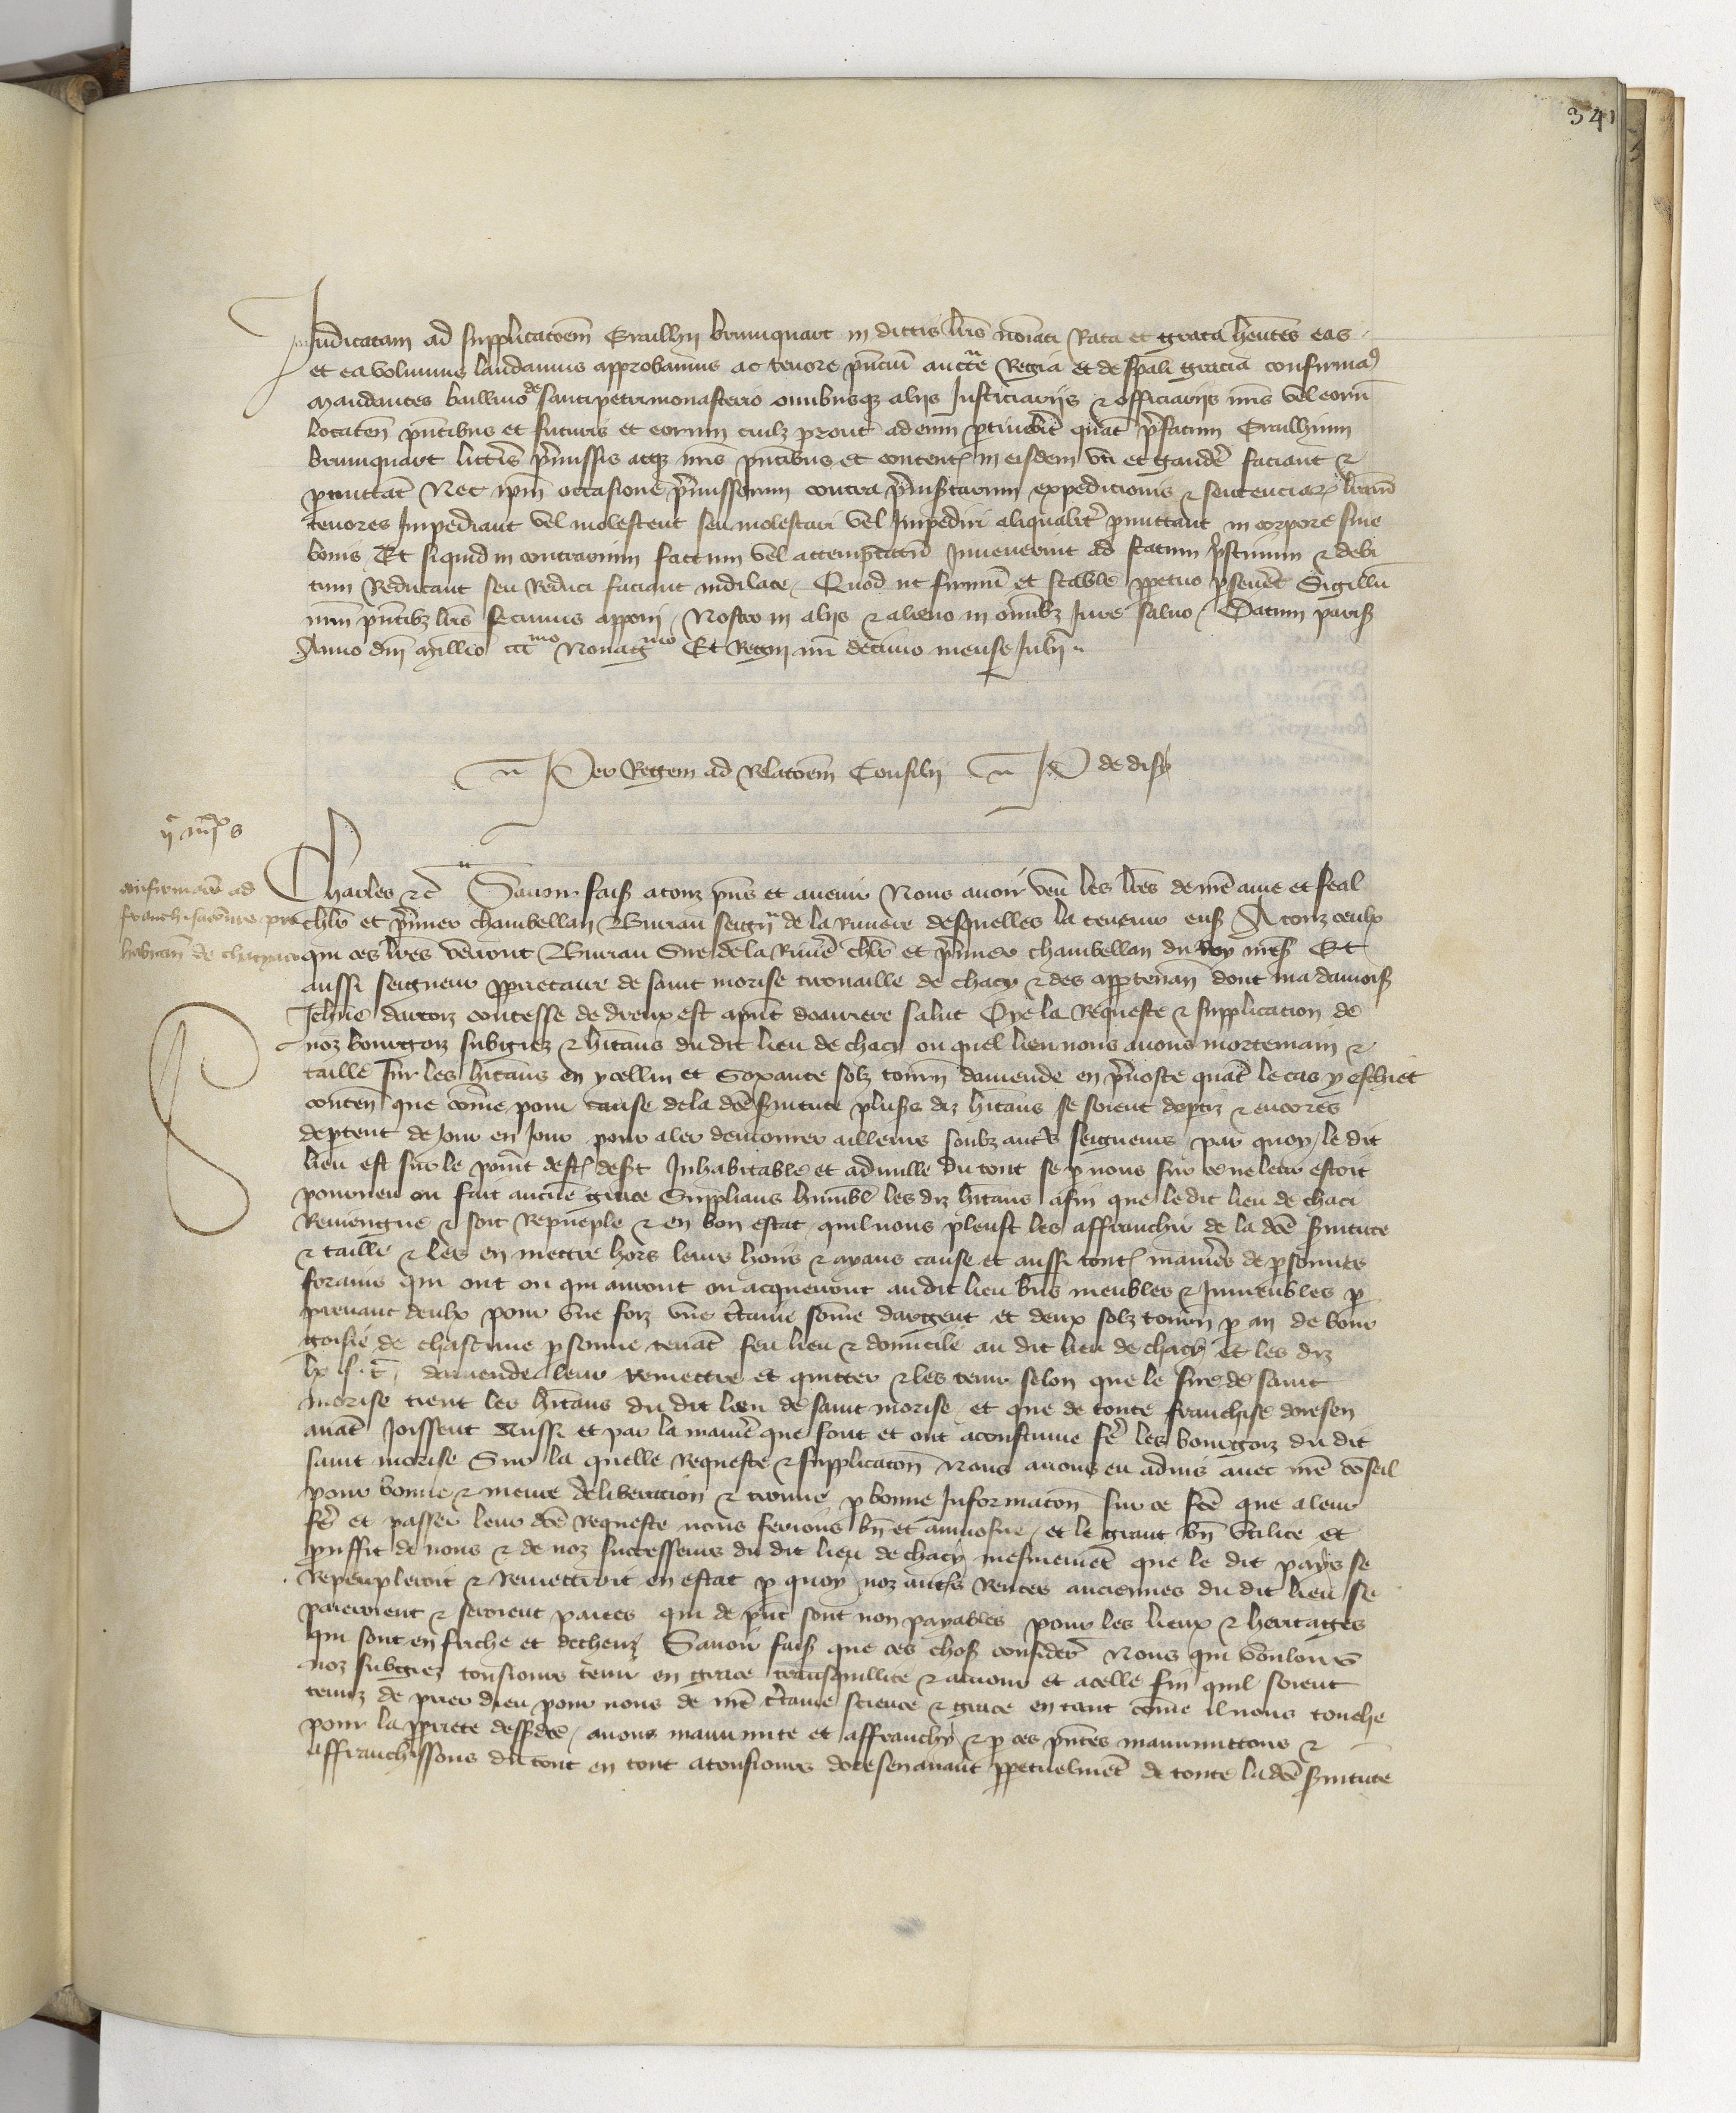 341
Judicatam ad supplicacoem Erailhii bruniquart in dictis lris noiati Rata et grata hentes eas
et ea volumus laudamus approbamus ac tenore pnciu auctte Regia et de spali gracia confirmam9
Mandantes baillivo de sanctipetrimonasterio omnibusqz aliis Justiciariis z officiariis nris vel eorum
locaten pntibus et futuris et eorum cuilz prout ad eum ptinebit quat prefatum Erailhium
bruniquart litteris premissis atqz nris pntibus et content in eisdem uti et gaudere faciant z
pmittat Nec ipm occasione premissorum contra expedicionis z sentenciar lraru
tenores Impediant vel molestent seu molestari vel Impediri aliqualiter pmittant in corpore sive
bonis Et siquid in contrarium factum vel attemptatu Invenerint ad statum pristinum z debi
tum Reducant seu Reduci faciant indilate Quod ut firmu et stabile ppetuo pseveret Sigillu
nrm pntibz lris fecimus apponi Nostro in aliis z alieno in omibz Jure salvo Datum paris
Anno dni millio ccc mo Nonag mo Et Regni nri decimo mense Julii
Per Regem ad Relacoem Consilii P de disy
confirmacio ad
franchisiamentu pro
habitan de chaciaco
Charles zc Savoir fais a touz pns et avenir Nous avoir veu les lres de nre ame et feal
chlr et premier chambellan Bureau seigr de la Riviere desquelles la teneur ens A touz ceulx
qui ces lres verront Bureau Sire de la Riviere chlr et premier chambellan du Roy nres Et
aussi seigneur pprietaire de saint morise tirouaille de chacy z des appartenan dont ma damois
Jehne dartoiz contesse de dreux est apnt doairiere salut Oye la Requeste z supplication de
noz bourgoiz subgiez z hitans du dit lieu de chacy ou quel lieu nous avons mortemain z
taille sur les hitans en ycellui et Soxante solz tourn damende en prevoste quat le cas y eschiet
conten que come pour cause de la dce svitute pluss diz hitans se soient deptiz z encores
deptent de jour en jour pour aler demourer ailleurs soubz autrs seigneurs par quoy le dit
lieu est sur le point destre desert Inhabitable et adnulle du tout se p nous sur ce ne leur estoit
pourveu ou fait aucune grace Supplians humblet les diz hitans afin que le dit lieu de chaci
Reviengne z soit Repueple z en bon estat quil nous pleust les affranchir de la dce svitute
z taille z les en mettre hors leurs hoirs z ayans cause et aussi tout manieres de psonnes
forains qui ont ou qui auront ou acquerront au dit lieu bns meubles z Inmeubles p
prenant deulx pour une foiz une ctaine some dargent et deux solz tourn p an de bour
goisie de chascune psonne tenat feu lieu z domicile au dit lieu de chacy et les diz
lx s t damende leur remettre et quitter z les tenir selon que le sire de saint
morise tient les hitans du dit lieu de saint morise et que de toute franchise doresen
avat joissent Aussi et par la maniere que font et ont acoustume fere les bourgoiz du dit
saint morise Sur la quelle Requeste z supplicacon Nous avons eu advis avec nre coseil
pour bonne z meure deliberacion z trouve p bonne Informacon sur ce fce que a leur
fere et passer leur dce requeste nous ferions bn et aumosne et le grant bn utilite et
prouffit de nous z de noz successeurs du dit lieu de chacy mesmement que le dit pays se
repeupleroit z Remettroit en estat p quoy noz autrs Rentes anciennes du dit lieu se
paieroient z seroient paiees qui de pnt sont non payables pour les lieux z heritages
qui sont en friche et decheuz Savoir fais que ces chos consideres Nous qui voulons
noz subgiez tousiours tenir en grace transquillite z amour et a celle fin quil soient
tenuz de prier dieu pour nous de nre ctaine science z grace en tant come il nous touche
pour la pprietee dessdce avons manumite et affranchy z p ces pntes manumittons z
affranchissons du tout en tout a tousiours doresenavant ppetuelment de toute la dce svitute